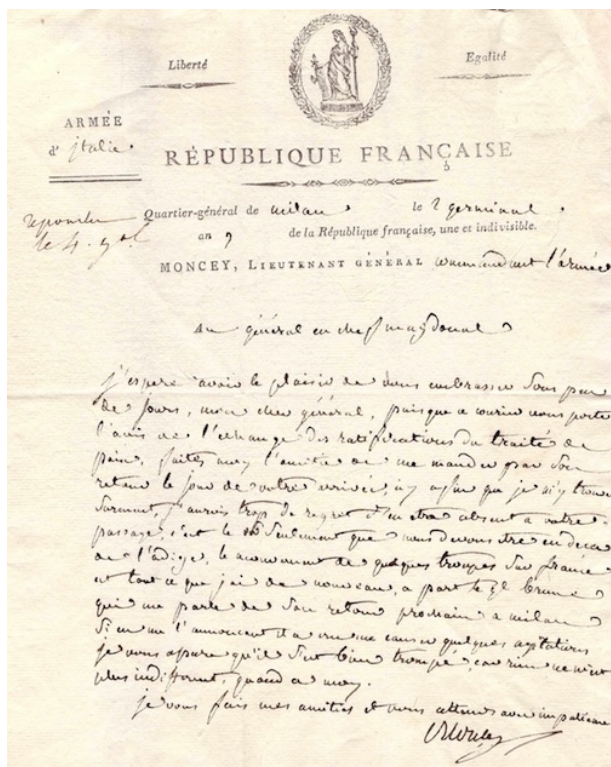 Liberté
Egalité
ARMÉE
d' jtalie.
RÉPUBLIQUE FRANÇAISE
repondu
le 4. g.al
Quartier-général de milan le 2 germinal
an 9 de la République française, une et indivisible.
MONCEY, LIEUTENANT GÉNÉRAL commandant l'armée
au général en chef macdonal
j'espere avoir le plaisir de vous embrasser sous peu
de jours, mon cher général, puisque ce courier vous porte
l'avis de l'echange des ratifications du traité de
paix, faites moy l'amitié de me mander par son
retour le jour de votre arrivée, icy afin que je m'y trouve
surement, j'aurois trop de regret d'en etre absent a votre
passage, c'est le seulement que nous devons etre en deca
de l'adige, le mouvement de quelques troupes sur france
est tout ce que j'ai de nouveau, a part le gl brune
qui me parle de son retour prochain a milan
si en me l'annoncant il a cru me causer quelques agitations
je vous assure qu'il s'est bien trompé, car rien ne m'est
plus indifferent, quand a moy.
je vous fais mes amitiés et vous attends avec impatience
Moncey